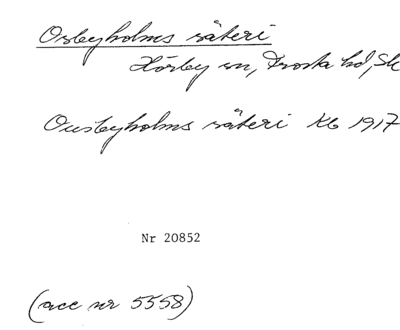 Osbyholms säteri
Hörby sn, Frosta hd, Sk
Ousbyholms säteri Kb 1917
Nr 20852
(acc nr 5558)